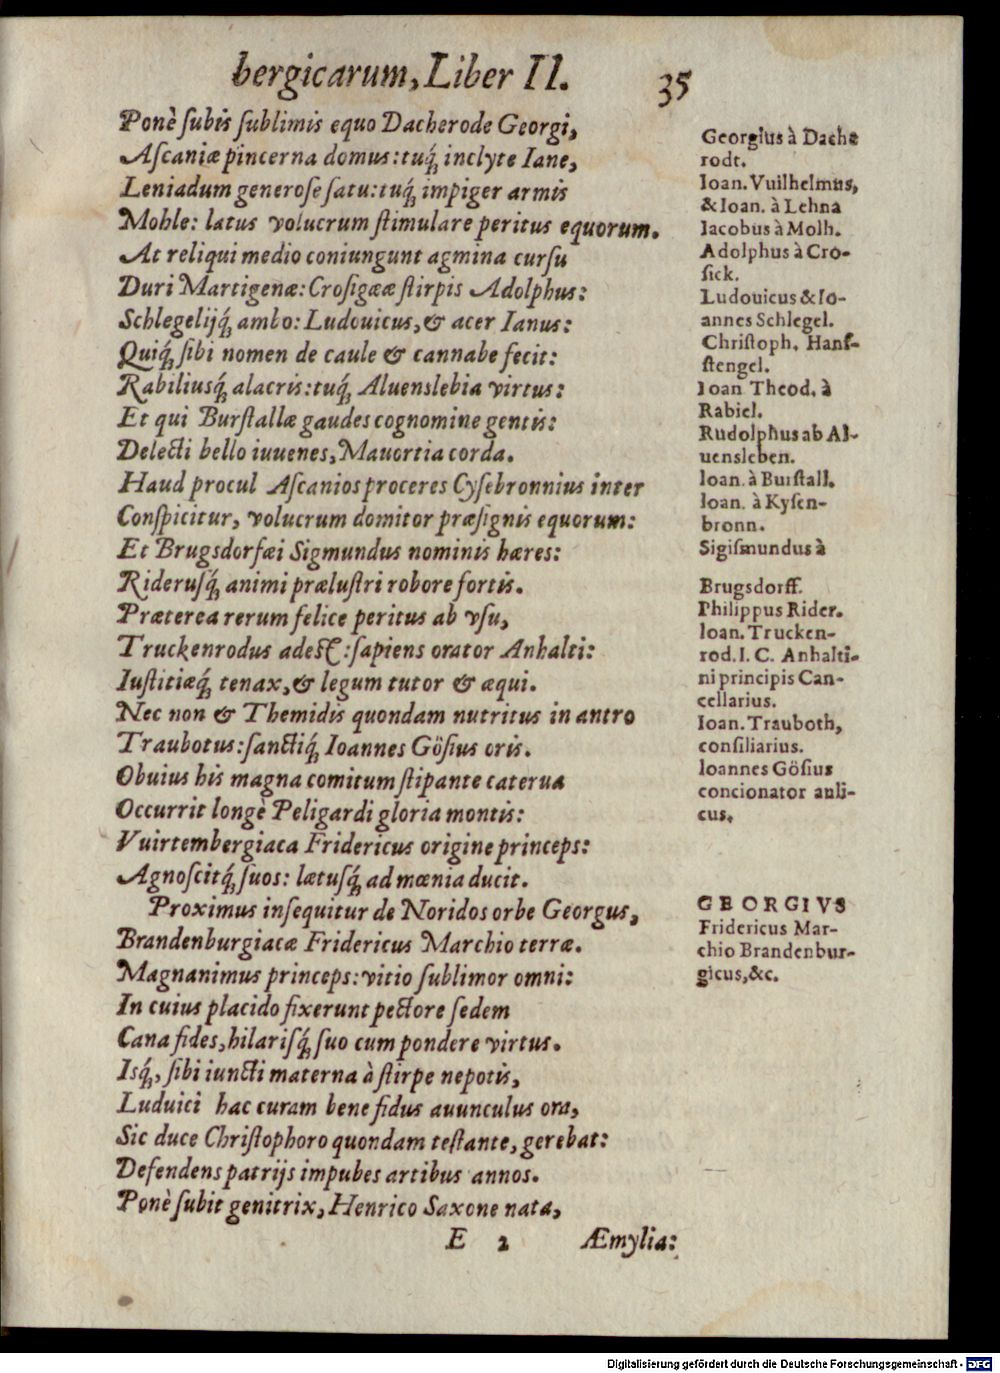 bergicarum, Liber II. 35
Ponè ſubis ſublimis equo Dacherode Georgi,
Aſcaniæ pincerna domus: tuq́; inclyte Iane,
Leniadum generoſe ſatu: tuq́; impiger armis
Mohle: latus volucrum ſtimulare peritus equorum.
At reliqui medio coniungunt agmina curſu
Duri Martigenæ: Croſigææ ſtirpis Adolphus:
Schlegelijq́; ambo: Ludouicus, & acer Ianus:
Quiq́; ſibi nomen de caule & cannabe fecit:
Rabiliusq́; alacris: tuq́; Aluenslebia virtus:
Et qui Burſtallæ gaudes cognomine gentis:
Delecti bello iuuenes, Mauortia corda.
Haud procul Aſcanios proceres Cyſebronnius inter
Conſpicitur, volucrum domitor præſignis equorum:
Et Brugsdorfæi Sigmundus nominis hæres:
Riderusq́; animi præluſtri robore fortis.
Præterea rerum felice peritus ab vſu,
Truckenrodus adeſt: ſapiens orator Anhalti:
Iuſtitiæq́; tenax, & legum tutor & æqui.
Nec non & Themidis quondam nutritus in antro
Traubotus: ſanctiq́; Ioannes Göſius oris.
Obuius his magna comitum ſtipante caterua
Occurrit longè Peligardi gloria montis:
Vuirtembergiaca Fridericus origine princeps:
Agnoſcitq́; ſuos: lætusq́; ad mœnia ducit.
Proximus inſequitur de Noridos orbe Georgus,
Brandenburgiacæ Fridericus Marchio terræ.
Magnanimus princeps: vitio ſublimor omni:
In cuius placido fixerunt pectore ſedem
Cana fides, hilariſq́; ſuo cum pondere virtus.
Isq́;, ſibi iuncti materna à ſtirpe nepotis,
Luduici hac curam bene fidus auunculus ora,
Sic duce Chriſtophoro quondam teſtante, gerebat:
Defendens patrijs impubes artibus annos.
Ponè ſubit genitrix, Henrico Saxone nata,
E 2 Æmylia:
Georgius à Dache
rodt.
Ioan. Vuilhelmus,
& Ioan. à Lehna
Iacobus à Molh.
Adolphus à Cro-
ſick.
Ludouicus & Io-
annes Schlegel.
Chriſtoph. Hanf-
ſtengel.
Ioan Theod. à
Rabiel.
Rudolphus ab Al-
uensleben.
Ioan. à Burſtall.
Ioan. à Kyſen-
bronn.
Sigiſmundus à
Brugsdorff.
Philippus Rider.
Ioan. Trucken-
rod. I. C. Anhalti-
ni principis Can-
cellarius.
Ioan. Trauboth,
conſiliarius.
Ioannes Göſius
concionator auli-
cus.
GEORGIVS
Fridericus Mar-
chio Brandenbur-
gicus, &c.
Digitalisierung gefördert durch die Deutsche Forschungsgemeinschaft - DFG